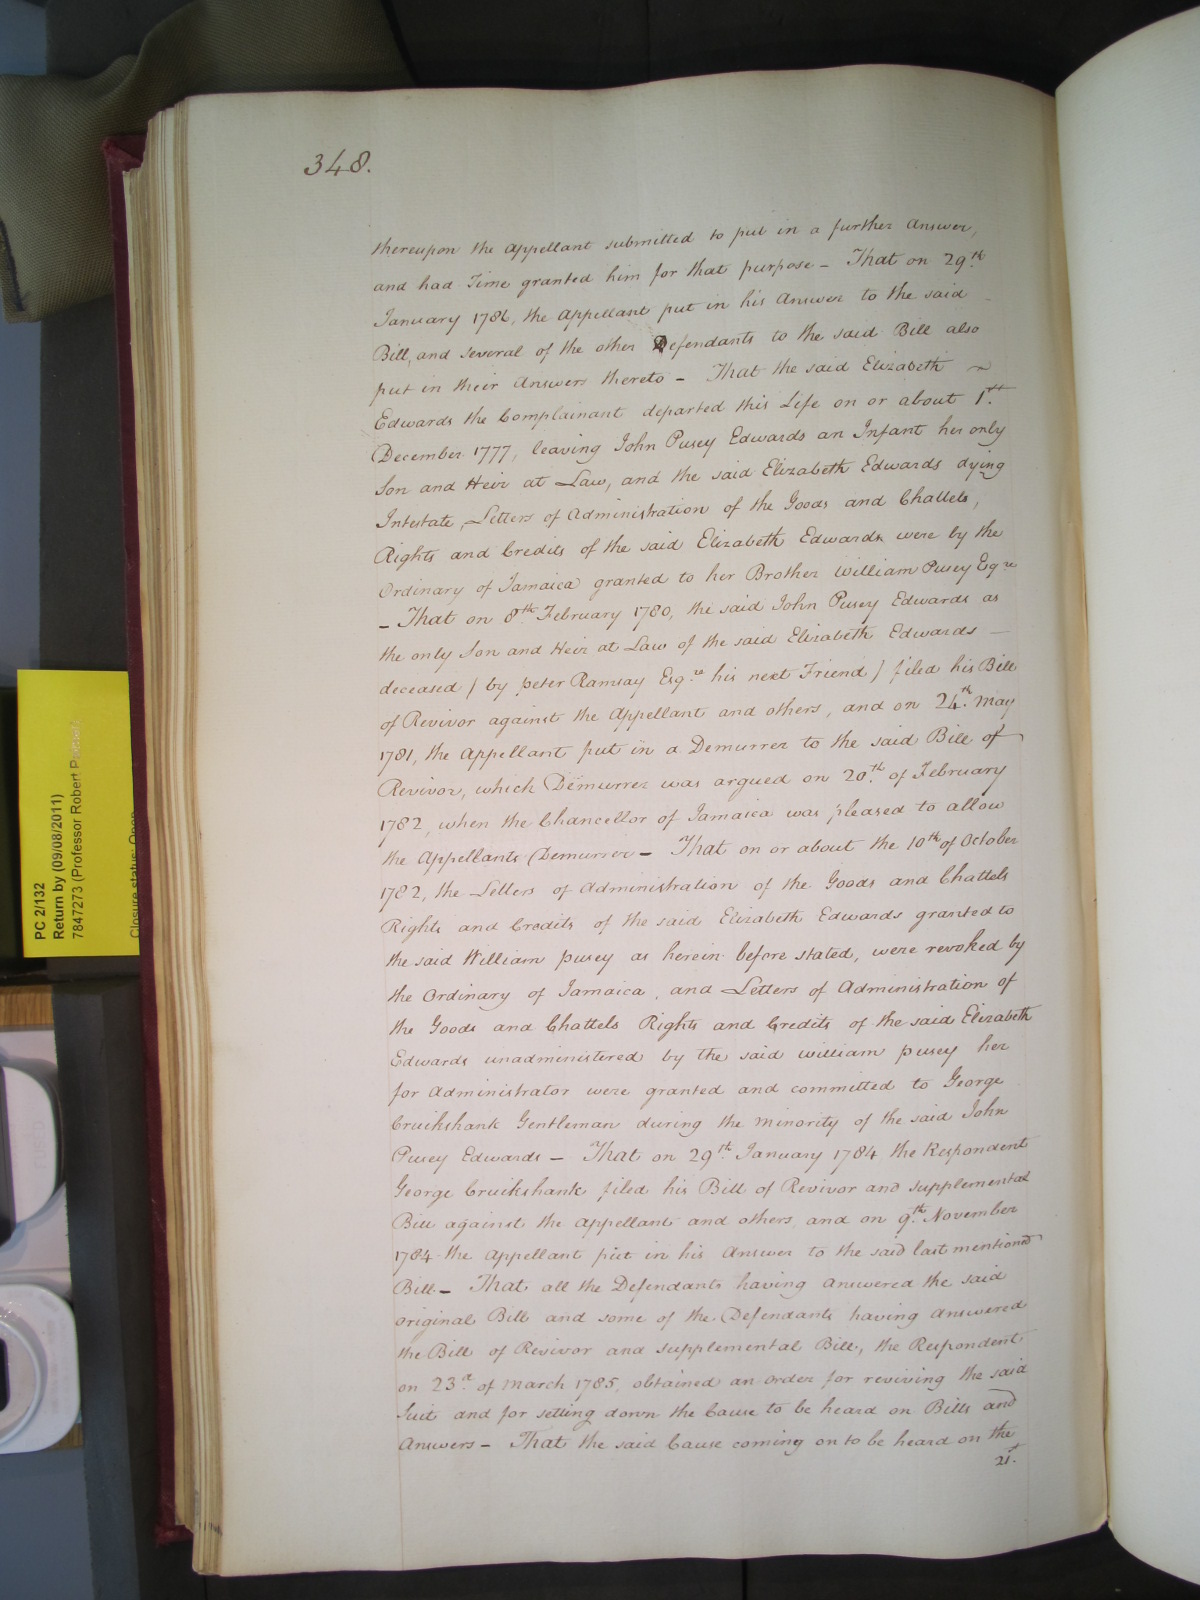 348.
thereupon the Appellant submitted to put in a further Answer,
and had Time granted him for that purpose – That on 29.th
January 1786, the Appellant put in his Answer to the said
Bill, and several of the other Defendants to the said Bill also
put in their Answers thereto – That the said Elizabeth ~
Edwards the Complainant departed this Life on or about 1.st
December 1777, leaving John Pusey Edwards an Infant her only
Son and Heir at Law, and the said Elizabeth Edwards dying
Intestate, Letters of Administration of the Goods and Chattels,
Rights and Credits of the said Elizabeth Edwards were by the
Ordinary of Jamaica granted to her Brother William Pusey Esq.re
– That on 8.th February 1780, the said John Pusey Edwards as
the only Son and Heir at Law of the said Elizabeth Edwards –
deceased / by Peter Ramsay Esq.re his next Friend / filed his Bill
of Revivor against the Appellant and others, and on 24.th May
1781, the Appellant put in a Demurrer to the said Bill of
Revivor, which Demurrer was argued on 20.th of February
1782, when the Chancellor of Jamaica was pleased to allow
the Appellants Demurrer – That on or about the 10th of October
1782, the Letters of Administration of the Goods and Chattels
Rights and Credits of the said Elizabeth Edwards granted to
the said William Pusey as herein before stated, were revoked by
the Ordinary of Jamaica, and Letters of Administration of
the Goods and Chattels Rights and Credits of the said Elizabeth
Edwards unadministered by the said William Pusey her
for Administrator were granted and committed to George
Cruikshank Gentleman during the Minority of the said John
Pusey Edwards – That on 29.th January 1784 the Respondent
George Cruikshank filed his Bill of Revivor and supplemental
Bill against the Appellant and others, and on 9.th November
1784 the Appellant put in his Answer to the said last mentioned
Bill – That all the Defendants having answered the said
original Bill and some of the Defendants having answered
the Bill of Revivor and supplemental Bill, the Respondent
on 23.d of March 1785, obtained an order for reviving the said
Suit and for setting down the Cause to be heard on Bills and
Answers – That the said Cause coming on to be heard on the
21.st
PC 2/132
Return by (09/08/2011)
7847273 (Professor Robert
Closure status: Open